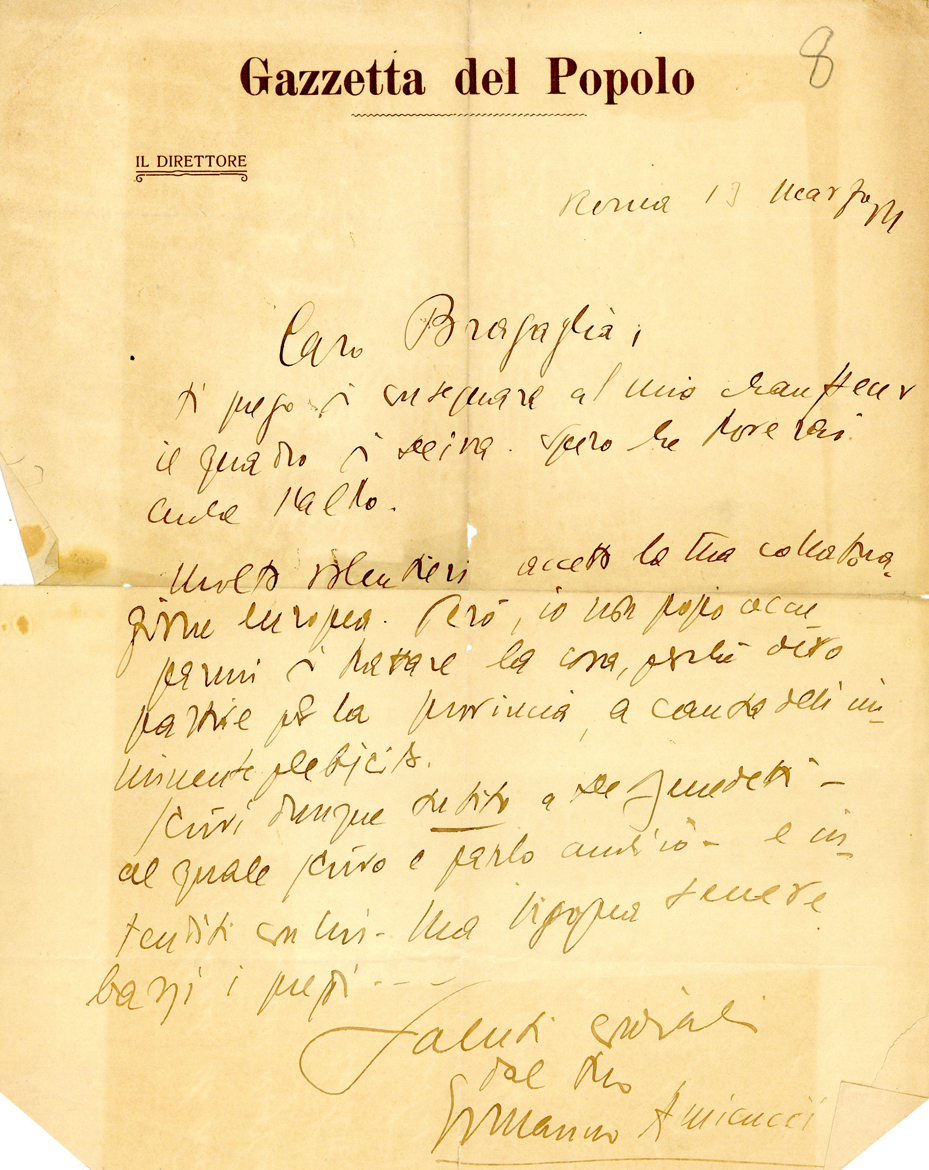 8
Gazzetta del Popolo
IL DIRETTORE
Roma 13 marzo
Caro Bragaglia,
ti prego di consegnare al mio chauffeur
il quadro di Deiva. Spero che troverai
anche l'altro.
Molto volentieri accetto la tua collabora-
zione europea. Però, io non posso occu-
parmi di trattare la cosa, perché devo
partire per la provincia, a causa dell'im-
minente plebiscito.
Scrivi dunque subito a De Benedetti -
al quale scrivo e parlo anch'io - e in-
tenditi con lui - Ma bisogna tenere
bassi i prezzi - - -
Saluti cordiali
dal tuo
Ermanno Amicucci